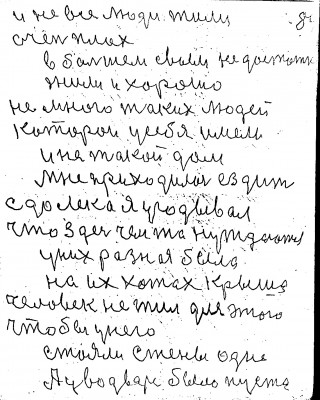 и не все люди жили
счетплах
в болшем своли недостатк
жили и хорошо
не много таких людей
которои у себя имели
и не такой дом
мне приходилос ездит
сдолека я угодвивал
что здес чем та нуждаютса
у них разная была
на их хотах крыша
человек не жил для этого
чтобы у него
стояли стены одне
А у во дваре было пуста